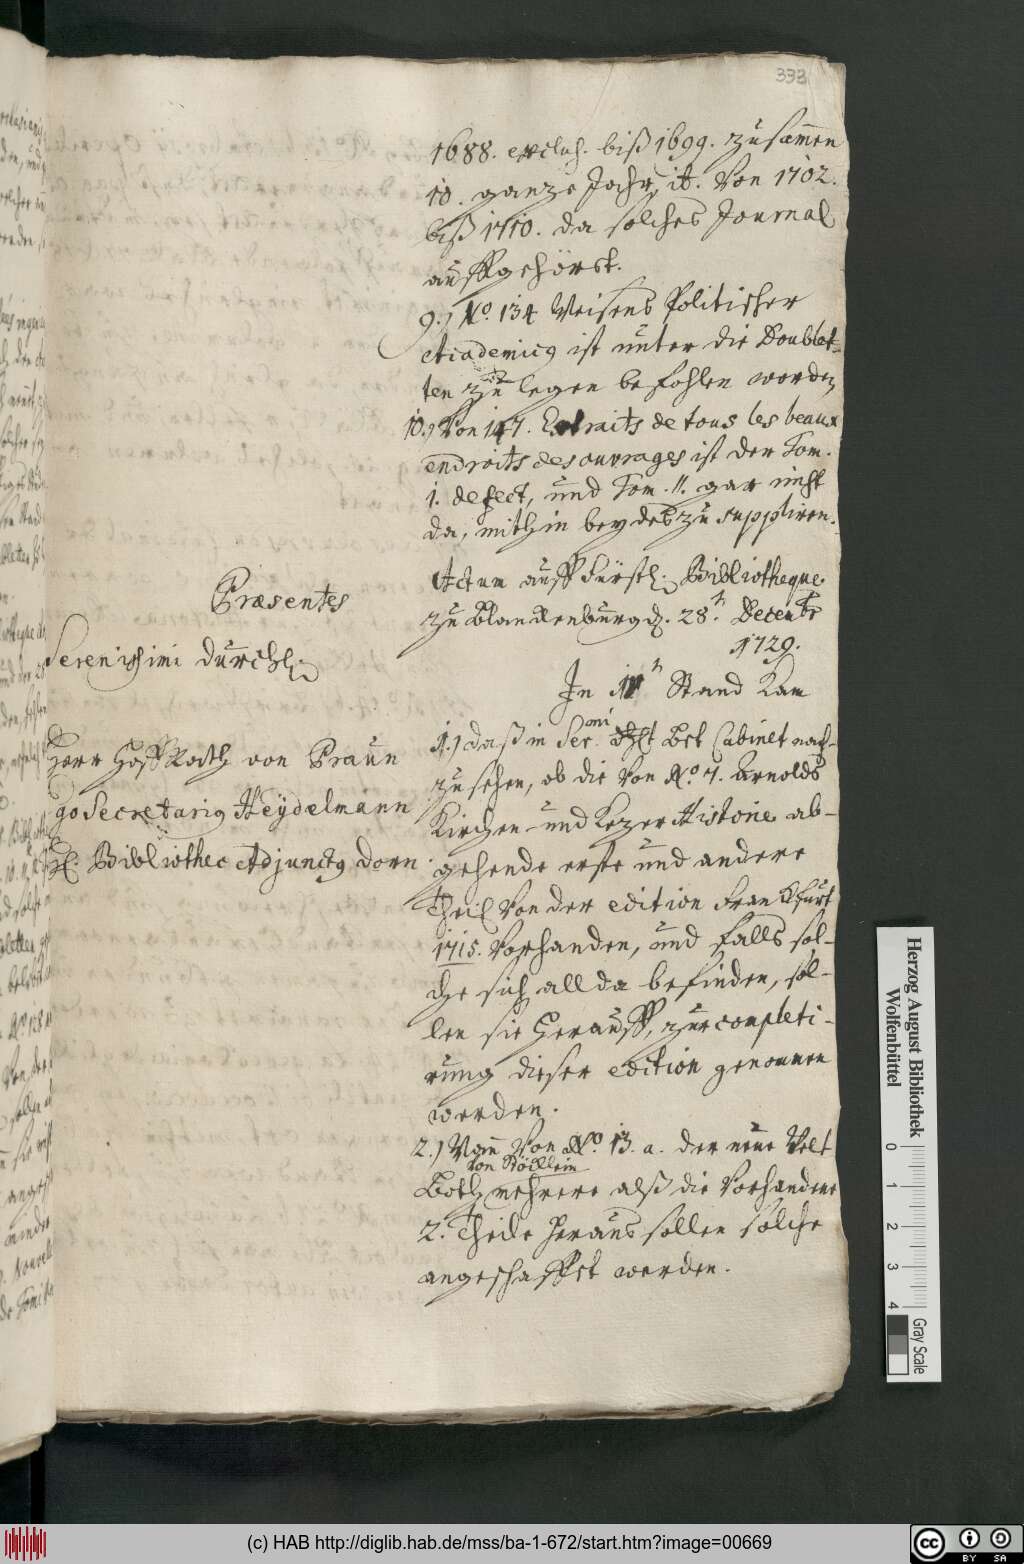 333
1688. exclus. biß 1699. zusamen
10. ganze Jahr, it. Von 1702.
biß 1710. da solches Journal
auffgehöret.
9.) No. 134 Weisens Politischer
Academicq ist unter die Doublet-
ten zu legen befohlen worden
10.) Von 147. Extraits de tous les beaux
endroits des ouvrages ist der Tom.
1. defect, und Tom. II. gar nicht
da, mithin beydes zu suppliren.
Actum auff Fürstl. Bibliotheque
zu Blanckenburg d. 28. Decembr
1729.
Præsentes
Serenissimi Durchl.
Herr HoffRath von Praun
Secretariq Heÿdelmann
Bibliothec Adjunctq Dorn
In Stand Kam
1.) daß in Ser.mi Cabinet nach-
zusehen, ob die Von No 7. Arnolds
Kirchen- und Kezer Historie ab-
gehende erste und andere
Theil Von der edition Franckfurt
1715. Vorhanden, und falls sol-
che sich allda befinden, sol-
len sie herauff, zur completi-
rung dieser edition genommen
werden.
2.) Wann Von No. 13. a. der neue Welt
von Stöcklein
Both mehrere alß die Vorhandene
2. Theile heraus sollen solche
angeschaffet werden.
Herzog August Bibliothek
Wolfenbüttel
0 1 2 3 4
Gray Scale
(c) HAB http://diglib.hab.de/mss/ba-1-672/start.htm?image=00669
cc BY SA